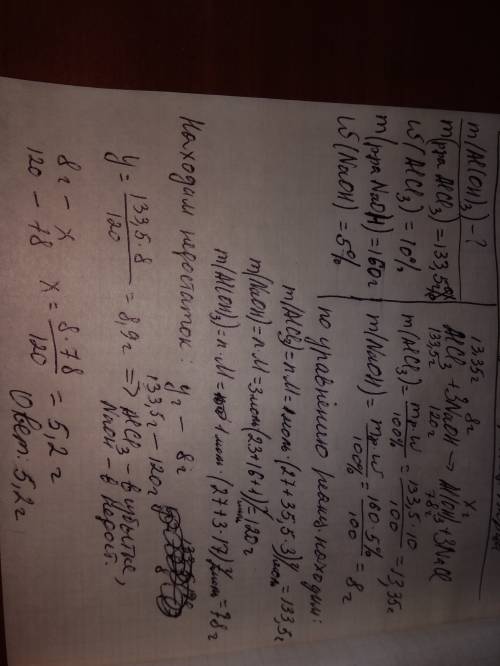 m(Al(OH)₃) - ?
m(р-ра AlCl₃) = 133,5г
W(AlCl₃) = 10%
m(р-ра NaOH) = 160г
W(NaOH) = 5%
13,35г 8г xг
AlCl₃ + 3NaOH → Al(OH)₃ + 3NaCl
133,5г 120г 78г
m(AlCl₃) = mр·w / 100% = 133,5·10 / 100 = 13,35г
m(NaOH) = mр·w / 100% = 160·5% / 100 = 8г
по уравнению реакц. находим:
m(AlCl₃) = n·M = 1моль·(27+35,5·3)г/моль = 133,5г
m(NaOH) = n·M = 3моль(23+16+1)г/моль = 120г
m(Al(OH)₃) = n·M = 1моль·(27+3·17)г/моль = 78г
Находим недостаток: yг - 8г
133,5г - 120г
y = 133,5 8 / 120 = 8,9г => AlCl₃ - в избытке,
NaOH - в недост.
8г - x
120 - 78 x = 8·78 / 120 = 5,2г
Ответ: 5,2г